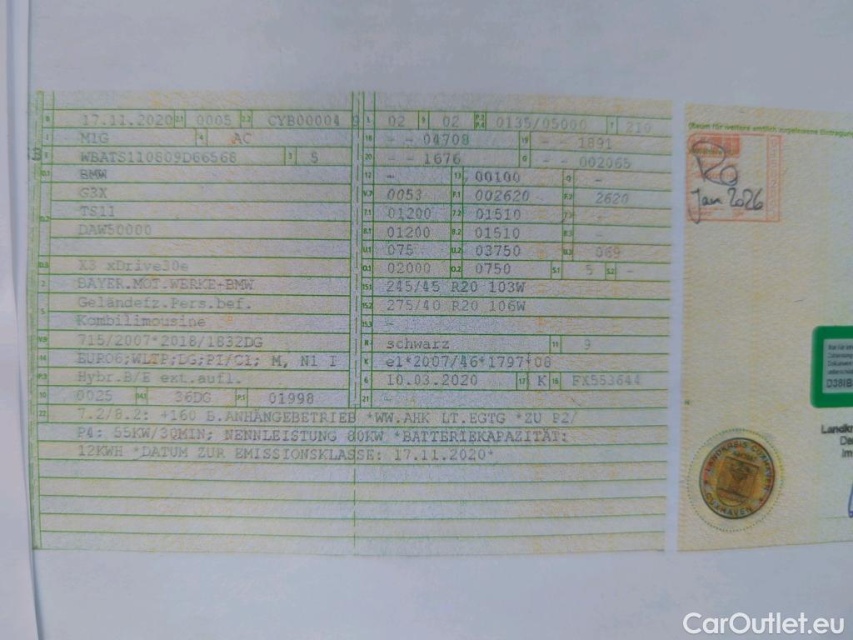 17.11.2020 0005 CYB00004 02 02 0135/05000 210
M1G AC - - 04708 - - 1891
5 - - 1676 - 002065
BMW - 00100 -
G3X 0053 002620 2620
TS11 01200 01510 -
01200 01510 -
075 03750 069
X3 xDrive30e 02000 0750 5 -
BAYER.MOT.WERKE-BMW 245/45 R20 103W
Geländefz.Pers.bef. 275/40 R20 106W
Kombilimousine
715/2007*2018/1832DG schwarz 9
EURO6;WLTP;DG;PI/CI; M, N1 I e1*2007/46*1797*08
Hybr.B/E ext.aufl. 10.03.2020 K FX553644
0025 36DG 01998
7.2/8.2: +160 B.ANHÄNGEBETRIEB *WW.AHK LT.EGTG *ZU P2/
P4: 55KW/30MIN; NENNLEISTUNG 80KW *BATTERIEKAPAZITÄT:
12KWH *DATUM ZUR EMISSIONSKLASSE: 17.11.2020*
Jan 2026
LANDKREIS CUXHAVEN
CarOutlet.eu